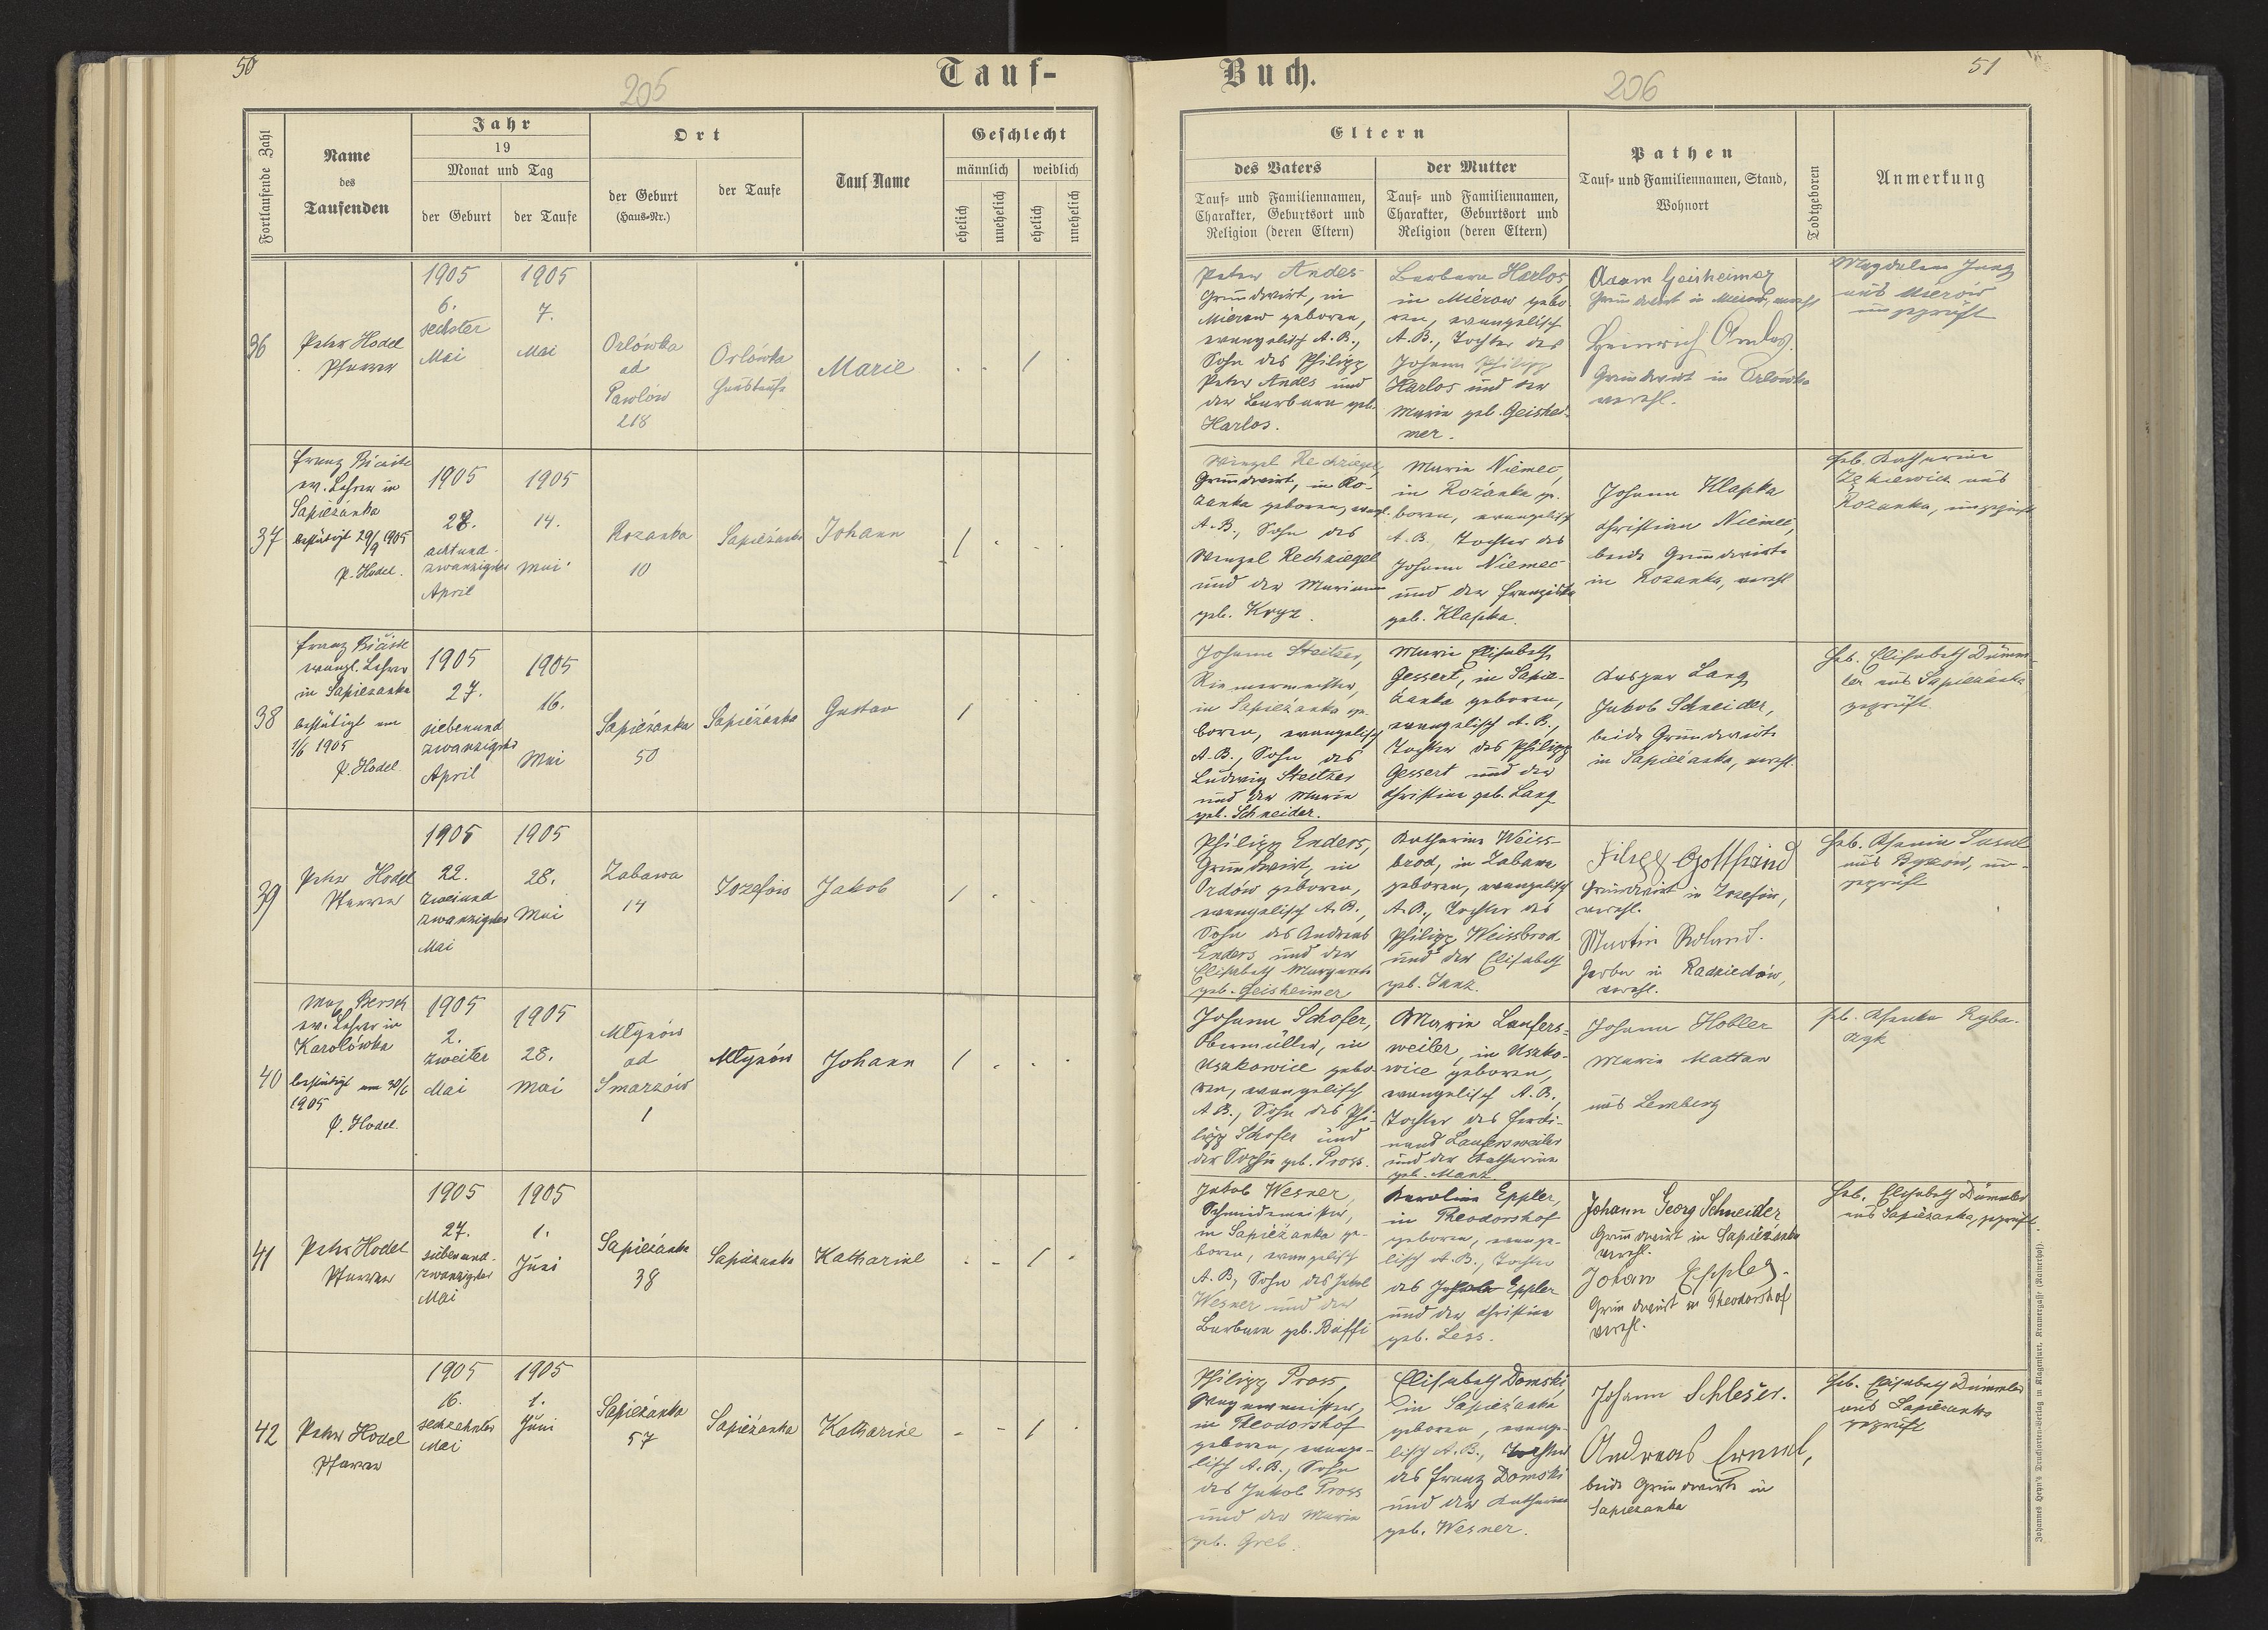 50
205
Tauf-
Fortlaufende Zahl
Name
des
Taufenden
Jahr
19
Monat und Tag
der Geburt
der Taufe
Ort
der Geburt
(Haus-Nr.)
der Taufe
Tauf Name
Geschlecht
männlich
weiblich
ehelich
unehelich
ehelich
unehelich
36
Peter Hodel
Pfarrer
1905
6.
sechster
Mai
1905
7.
Mai
Orlówka
ad
Pawlów
218
Orlówka
Haustaufe
Marie
. . 1
37
Franz
ev. Lehrer in
Sapieżanka
bestätigt 29/9 1905
P. Hodel.
1905
28.
achtund-
zwanzigster
April
1905
14.
Mai
Rozanka
10
Sapieżanka
Johann
1 . . .
38
Franz
evangl. Lehrer
in Sapiezanka
bestätigt am
1/6 1905
P. Hodel
1905
27.
siebenund
zwanzigster
April
1905
16.
Mai
Sapieżanka
50
Sapieżanka
Gustav
1
39
Peter Hodel
Pfarrer
1905
22.
zweiund
zwanzigster
Mai
1905
28.
Mai
Zabawa
14
Jozefów
Jakob
1 . .
40
Max Bersch
ev. Lehrer in
Karolówka
bestätigt am 30/6
1905
P. Hodel.
1905
2.
zweiter
Mai
1905
28.
Mai
Młynów
ad
Smarzów
1
Młynów
Johann
1 . . .
41
Peter Hodel
Pfarrer
1905
27.
siebenund-
zwanzigster
Mai
1905
1.
Juni
Sapieżanka
38
Sapiezanka
Katharine
. - 1 .
42
Peter Hodel
Pfarrer
1905
16.
sechzehnter
Mai
1905
1.
Juni
Sapieżanka
57
Sapieżanka
Katharine
- - 1 .
Buch.
206
51
Eltern
des Vaters
Tauf- und Familiennamen,
Charakter, Geburtsort und
Religion (deren Eltern)
der Mutter
Tauf- und Familiennamen,
Charakter, Geburtsort und
Religion (deren Eltern)
Pathen
Tauf- und Familiennamen, Stand,
Wohnort
Todtgeboren
Anmerkung
Peter Andes
Grundwirt, in
Mierow geboren,
evangelisch A.B.,
Sohn des Philipp
Peter Andes und
der Barbara geb.
Harlos.
Barbara Harlos,
in Mierow gebo-
ren, evangelisch
A.B., Tochter des
Johann Philipp
Harlos und der
Marie geb. Geishei-
mer.
Adam Geisheimer
Grundwirt in Mierow, verehl
Heinrich Andes.
Grundwirt in Orlówka
verehl.
Magdalena Jung
aus Mierów
ungeprüft
Wenzel Rechziegel,
Grundwirt, in Ro-
zanka geboren, evagl.
A.B., Sohn des
Wenzel Rechziegel
und der Marianne
geb. Kryz.
Marie Niemec
in Rozánka ge-
boren, evangelisch
A.B. Tochter des
Johann Niemec
und der Franziska
geb. Klapka.
Johann Klapka
Christian Niemec,
beide Grundwirte
in Rozanka, verehl
Heb. Katharina
aus
Rozanka, ungeprüft
Johann Steitzer,
Riemermeister,
in Sapiezanka ge-
boren, evangelisch
A.B., Sohn des
Ludwig Steitzer
und der Marie
geb. Schneider.
Marie Elisabeth
Gessert, in Sapie-
żanka geboren,
evangelisch A.B.,
Tochter des Philipp
Gessert und der
Christine geb. Lang
Kaspar Lang
Jakob Schneider,
beide Grundwirte
in Sapieżanka, verehl.
Heb. Elisabeth Dümm-
ler aus Sapieżanka
geprüft.
Philipp Enders,
Grundwirt, in
Ordów geboren,
evangelisch A.B.,
Sohn des Andreas
Enders und der
Elisabeth Margarete
geb. Geisheimer
Katharina Weiss-
brod, in Zabawa
geboren, evangelisch
A.B., Tochter des
Philipp Weissbrod
und der Elisabeth
geb. Janz.
Filipp Gottfried
Grundwirt in Jozefów,
verehl.
Martin Roland.
Gerber in Radziechów,
verehl.
Heb.
aus Byszów, un-
geprüft
Johann Schofer,
Obermüller, in
Uszkowice gebo-
ren, evangelisch
A.B., Sohn des Phi-
lipp Schofer und
der Sophie geb. Pross.
Marie Laufers-
weiler, in Uszko-
wice geboren,
evangelisch A.B.,
Tochter des Ferdi-
nand Laufersweiler
und der Katharina
geb. Manz
Johann Hobler
Marie Mattan
aus Lemberg
Heb. Ryba-
czyk
Jakob Wesner,
Schmiedmeister,
in Sapieżanka ge-
boren, evangelisch
A.B., Sohn des Jakob
Wesner und der
Barbara geb. Buffi
Karoline Eppler,
in Theodorshof
geboren, evange-
lisch A.B., Tochter
des Johann Eppler
und der Christine
geb. Less.
Johann Georg Schneider
Grundwirt in Sapieżanka
verehl.
Johan Eppler.
Grundwirt in Theodorshof
verehl.
Heb. Elisabeth Dümmler
aus Sapiezanka, geprüft
Philipp Pross,
Wagnermeister,
in Theodorshof
geboren, evange-
lisch A.B., Sohn
des Jakob Pross
und der Marie
geb. Greb.
Elisabeth Domski,
in Sapieżanka
geboren, evange-
lisch A.B., Tochter
des Franz Domski
und der Katharina
geb. Wesner.
Johann Schleser.
Andreas
beide Grundwirte in
Sapiezanka
Heb. Elisabeth Dümmler
aus Sapiezanka
geprüft
Johannes Heyn's Drucksorten-Verlag in Klagenfurt, Kramergasse (Rainerhof).